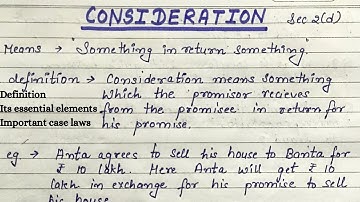 CONSIDERATION Sec 2(d)
Means → "Something in return something".
definition → Consideration means something
Definition which the promisor recieves
Its essential elements from the promisee in return for
Important case laws his promise.
eg → Anta agrees to sell his house to Banta for
₹ 10 lakh. Here Anta will get ₹ 10
lakh in exchange for his promise to sell
his house